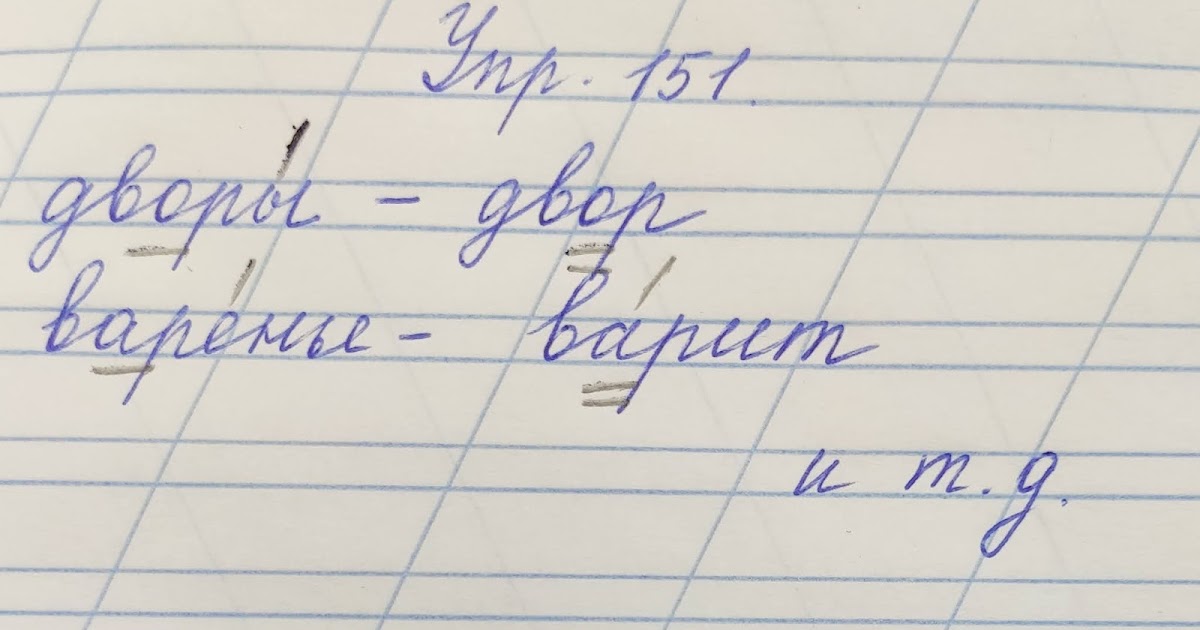 Упр. 151.
дворы́ - двор
варе́нье - ва́рит
и т.д.